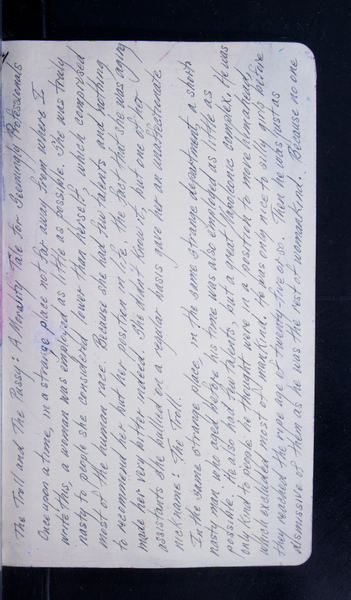 The Troll and The Pussy: A Morality Tale for Seemingly Professionals
Once upon a time, in a strange place not far away from where I
write this, a woman was employed as little as possible. She was truly
nasty to people she considered lower than herself, which comprised
most of the human race. Because she had few talents and nothing
to recommend her but her position in life. The fact that she was aging
made her very bitter indeed. She didn't know it, but one of her
assistants she bullied on a regular basis gave her an unaffectionate
nickname: The Troll.
In the same strange place, in the same strange department, a short
nasty man who aged before his time was also employed as little as
possible. He also had few talents, but a great Napoleonic complex. He was
only kind to people he thought were in a position to move him ahead,
which excluded most of mankind. He was only nice to silly girls before
they reached the ripe age of twenty-three or so. Then he was just as
dismissive of them as he was the rest of womankind. Because no one